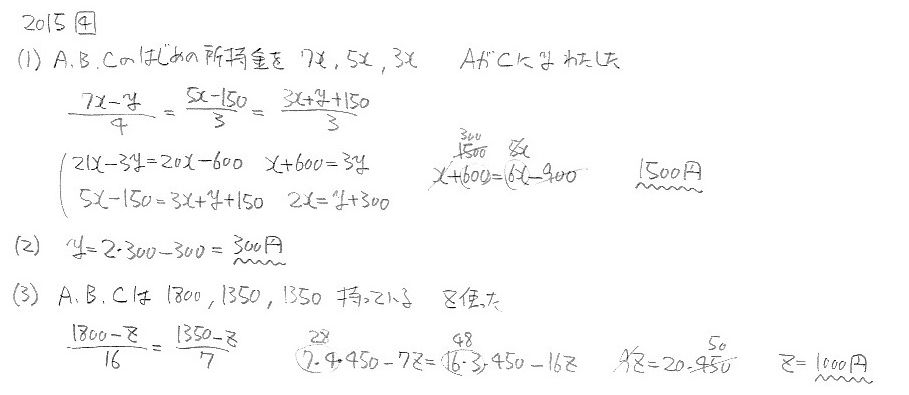 2015 4
(1) A.B.Cのはじめの所持金を 7x, 5x, 3x AがCにyわたした
(7x-y)/4 = (5x-150)/3 = (3x+y+150)/3
21x-3y=20x-600 x+600=3y
5x-150=3x+y+150 2x=y+300
300 5x
1500
x+600=6x-900 1500円
(2) y=2・300-300=300円
(3) A.B.Cは 1800, 1350, 1350 持っている zを使った
(1800-z)/16 = (1350-z)/7
28 48 50
7・4・450-7z=16・3・450-16z 9z=20・450 z=1000円